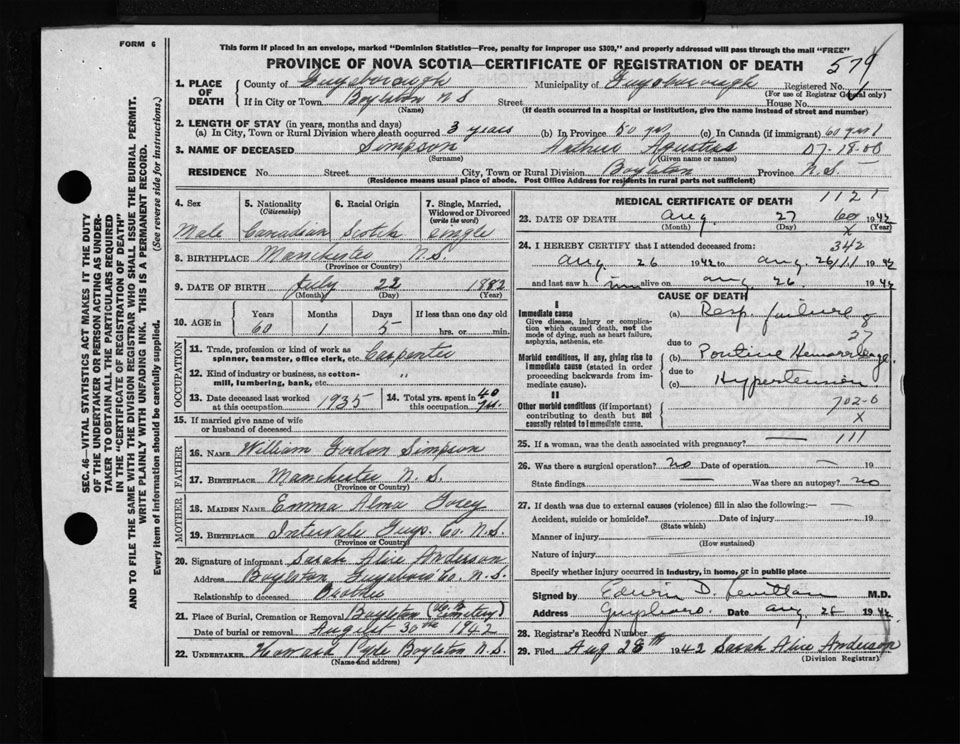 FORM 6
This form if placed in an envelope, marked "Dominion Statistics—Free, penalty for improper use $300," and properly addressed will pass through the mail "FREE"
PROVINCE OF NOVA SCOTIA—CERTIFICATE OF REGISTRATION OF DEATH
579
1. PLACE OF DEATH County of Guysborough Municipality of Guysborough Registered No.
(For use of Registrar General only)
If in City or Town Boylston N S Street House No.
(Name) (If death occurred in a hospital or institution, give the name instead of street and number)
2. LENGTH OF STAY (in years, months and days)
(a) In City, Town or Rural Division where death occurred 3 years (b) In Province 50 yrs (c) In Canada (if immigrant) 60 yrs 1
3. NAME OF DECEASED Simpson Arthur Agustus 07-18-00
(Surname) (Given name or names)
RESIDENCE No. Street City, Town or Rural Division Boylston Province N.S.
(Residence means usual place of abode. Post Office Address for residents in rural parts not sufficient)
4. Sex
5. Nationality (Citizenship)
6. Racial Origin
7. Single, Married, Widowed or Divorced (write the word)
Male Canadian Scotch Single
8. BIRTHPLACE Manchester N.S.
(Province or Country)
9. DATE OF BIRTH July 22 1882
(Month) (Day) (Year)
10. AGE in Years Months Days If less than one day old
60 1 5 hrs. or min.
OCCUPATION
11. Trade, profession or kind of work as spinner, teamster, office clerk, etc. Carpenter
12. Kind of industry or business, as cotton-mill, lumbering, bank, etc. "
13. Date deceased last worked at this occupation 1935
14. Total yrs. spent in this occupation 40 yr.
15. If married give name of wife or husband of deceased
FATHER
16. NAME William Gordon Simpson
17. BIRTHPLACE Manchester N.S.
(Province or Country)
MOTHER
18. MAIDEN NAME Emma Alma
19. BIRTHPLACE Intervale Guys. Co N.S.
(Province or Country)
20. Signature of informant Sarah Alice Anderson
Address Boylston Guysboro' Co. N.S.
Relationship to deceased Brother
21. Place of Burial, Cremation or Removal Boylston (Cemetery)
Date of burial or removal August 30th 1942
22. UNDERTAKER Howard Pyle Boylston N.S.
(Name and address)
MEDICAL CERTIFICATE OF DEATH 1121
23. DATE OF DEATH Aug 27 60 1942
(Month) (Day) (Year)
X
24. I HEREBY CERTIFY that I attended deceased from: 342
Aug 26 1942 to Aug. 26 111 1942
and last saw him alive on Aug. 26. 1942
CAUSE OF DEATH
I
Immediate cause
Give disease, injury or complication which caused death, not the mode of dying, such as heart failure, asphyxia, asthenia, etc.
(a) Resp. failure
8
27
due to
Morbid conditions, if any, giving rise to immediate cause (stated in order proceeding backwards from immediate cause).
(b) Pontine Hemorrhage.
due to
(c) Hypertension
II
Other morbid conditions (if important) contributing to death but not causally related to immediate cause.
702-0
X
25. If a woman, was the death associated with pregnancy? — 111
26. Was there a surgical operation? no Date of operation — 19
State findings — Was there an autopsy? no
27. If death was due to external causes (violence) fill in also the following:—
Accident, suicide or homicide? Date of injury 19
(State which)
Manner of injury
(How sustained)
Nature of injury
Specify whether injury occurred in industry, in home, or in public place
Signed by Edwin D. M.D.
Address Guysboro. Date Aug 28 1942
28. Registrar's Record Number
29. Filed Aug 28th 1942 Sarah Alice Anderson
(Division Registrar)
SEC. 46—VITAL STATISTICS ACT MAKES IT THE DUTY OF THE UNDERTAKER OR PERSON ACTING AS UNDERTAKER TO OBTAIN ALL THE PARTICULARS REQUIRED IN THE "CERTIFICATE OF REGISTRATION OF DEATH"
AND TO FILE THE SAME WITH THE DIVISION REGISTRAR WHO SHALL ISSUE THE BURIAL PERMIT.
WRITE PLAINLY WITH UNFADING INK. THIS IS A PERMANENT RECORD.
Every item of information should be carefully supplied. (See reverse side for instructions.)